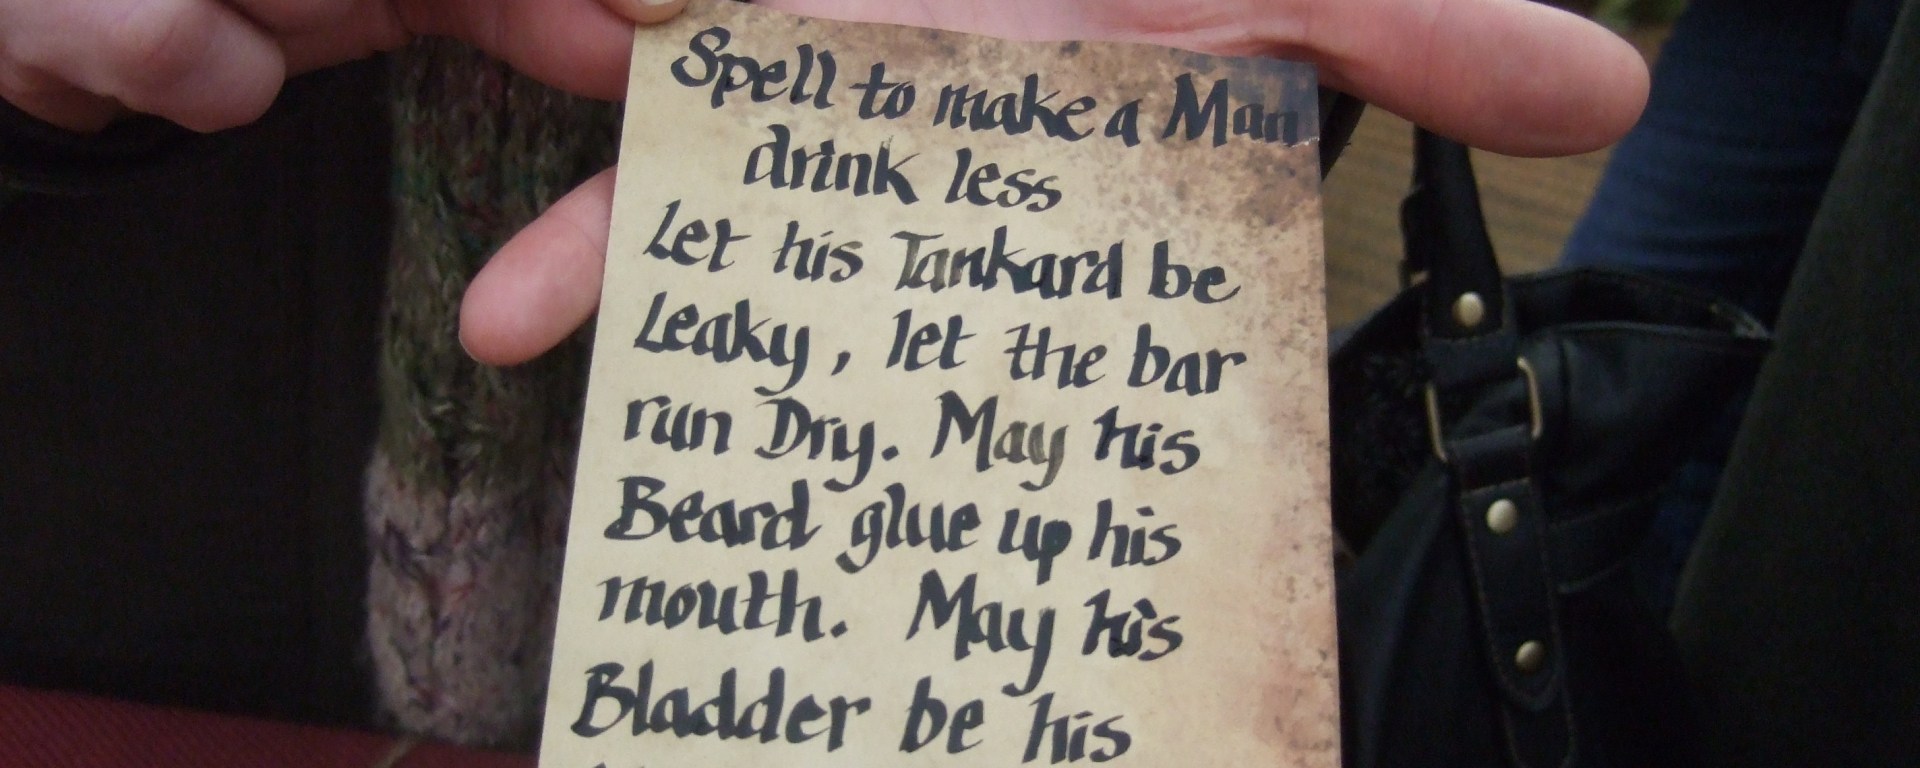 Spell to make a Man
drink less
Let his Tankard be
Leaky, let the bar
run Dry. May his
Beard glue up his
mouth. May his
Bladder be his